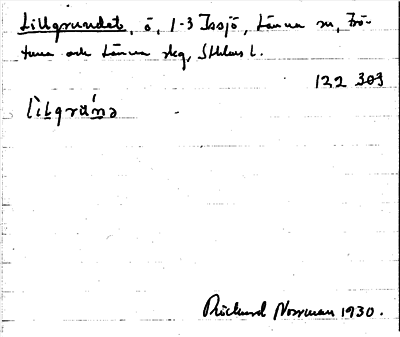 Lillgrundet, ö, 1-3 Issjö, Länna sn, Frö-
tuna och Länna skg, Sthlms l.
122 303
Rickard Norrman 1930.